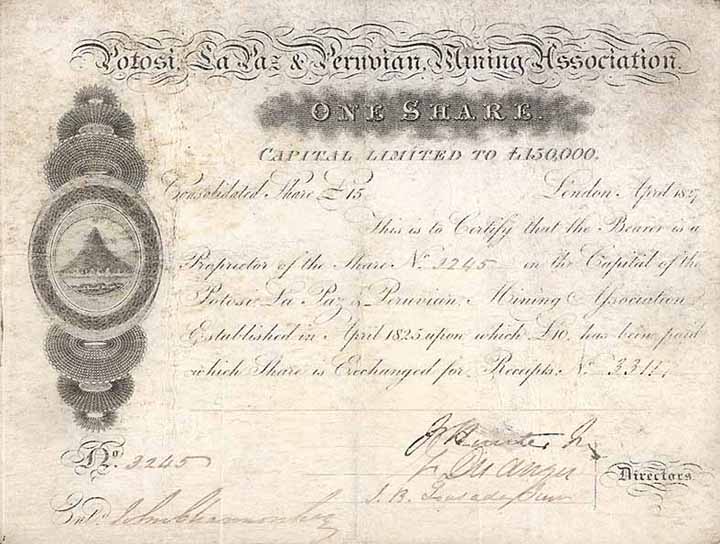 Potosi, La Paz & Peruvian, Mining Association.
ONE SHARE.
CAPITAL LIMITED TO £150,000.
Consolidated Share £15 London April 1827
This is to Certify that the Bearer is a
Proprietor of the Share No. 3245 in the Capital of the
Potosi, La Paz, & Peruvian, Mining Association
Established in April 1825 upon which £10, has been paid
which Share is Exchanged for Receipts, No.
No. 3245
Directors
Entd.